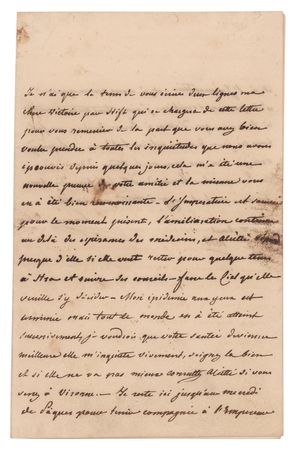 Je n'ai que le tems de vous écrire deux lignes ma
chere Victoire par qui se charge de cette lettre
pour vous remercier de la part que vous avez bien
voulu prendre à toutes les inquiétudes que nous avons
éprouvés depuis quelques jours, cela m'a été une
nouvelle preuve de votre amitié et la mienne vous
en a été bien reconnaissante. L'Impératrice est sauvée
pour le moment présent, l'amélioration continue
au delà des espérances des médecins, et
presque d'elle si elle veut rester pour quelque tems
à et suivre des conseils fasse le Ciel qu'elle
veuille s'y décider – Mon aux yeux est
terminée mais tout le monde en a été atteint
successivement, je voudrois que votre santé devienne
meilleure elle m'inquiète vivement, soignez la bien
et si elle ne va pas mieux consultez si vous
venez à Vienne. Je reste ici jusqu'au mecredi
de Pâques pour tenir compagnie à l'Empereur